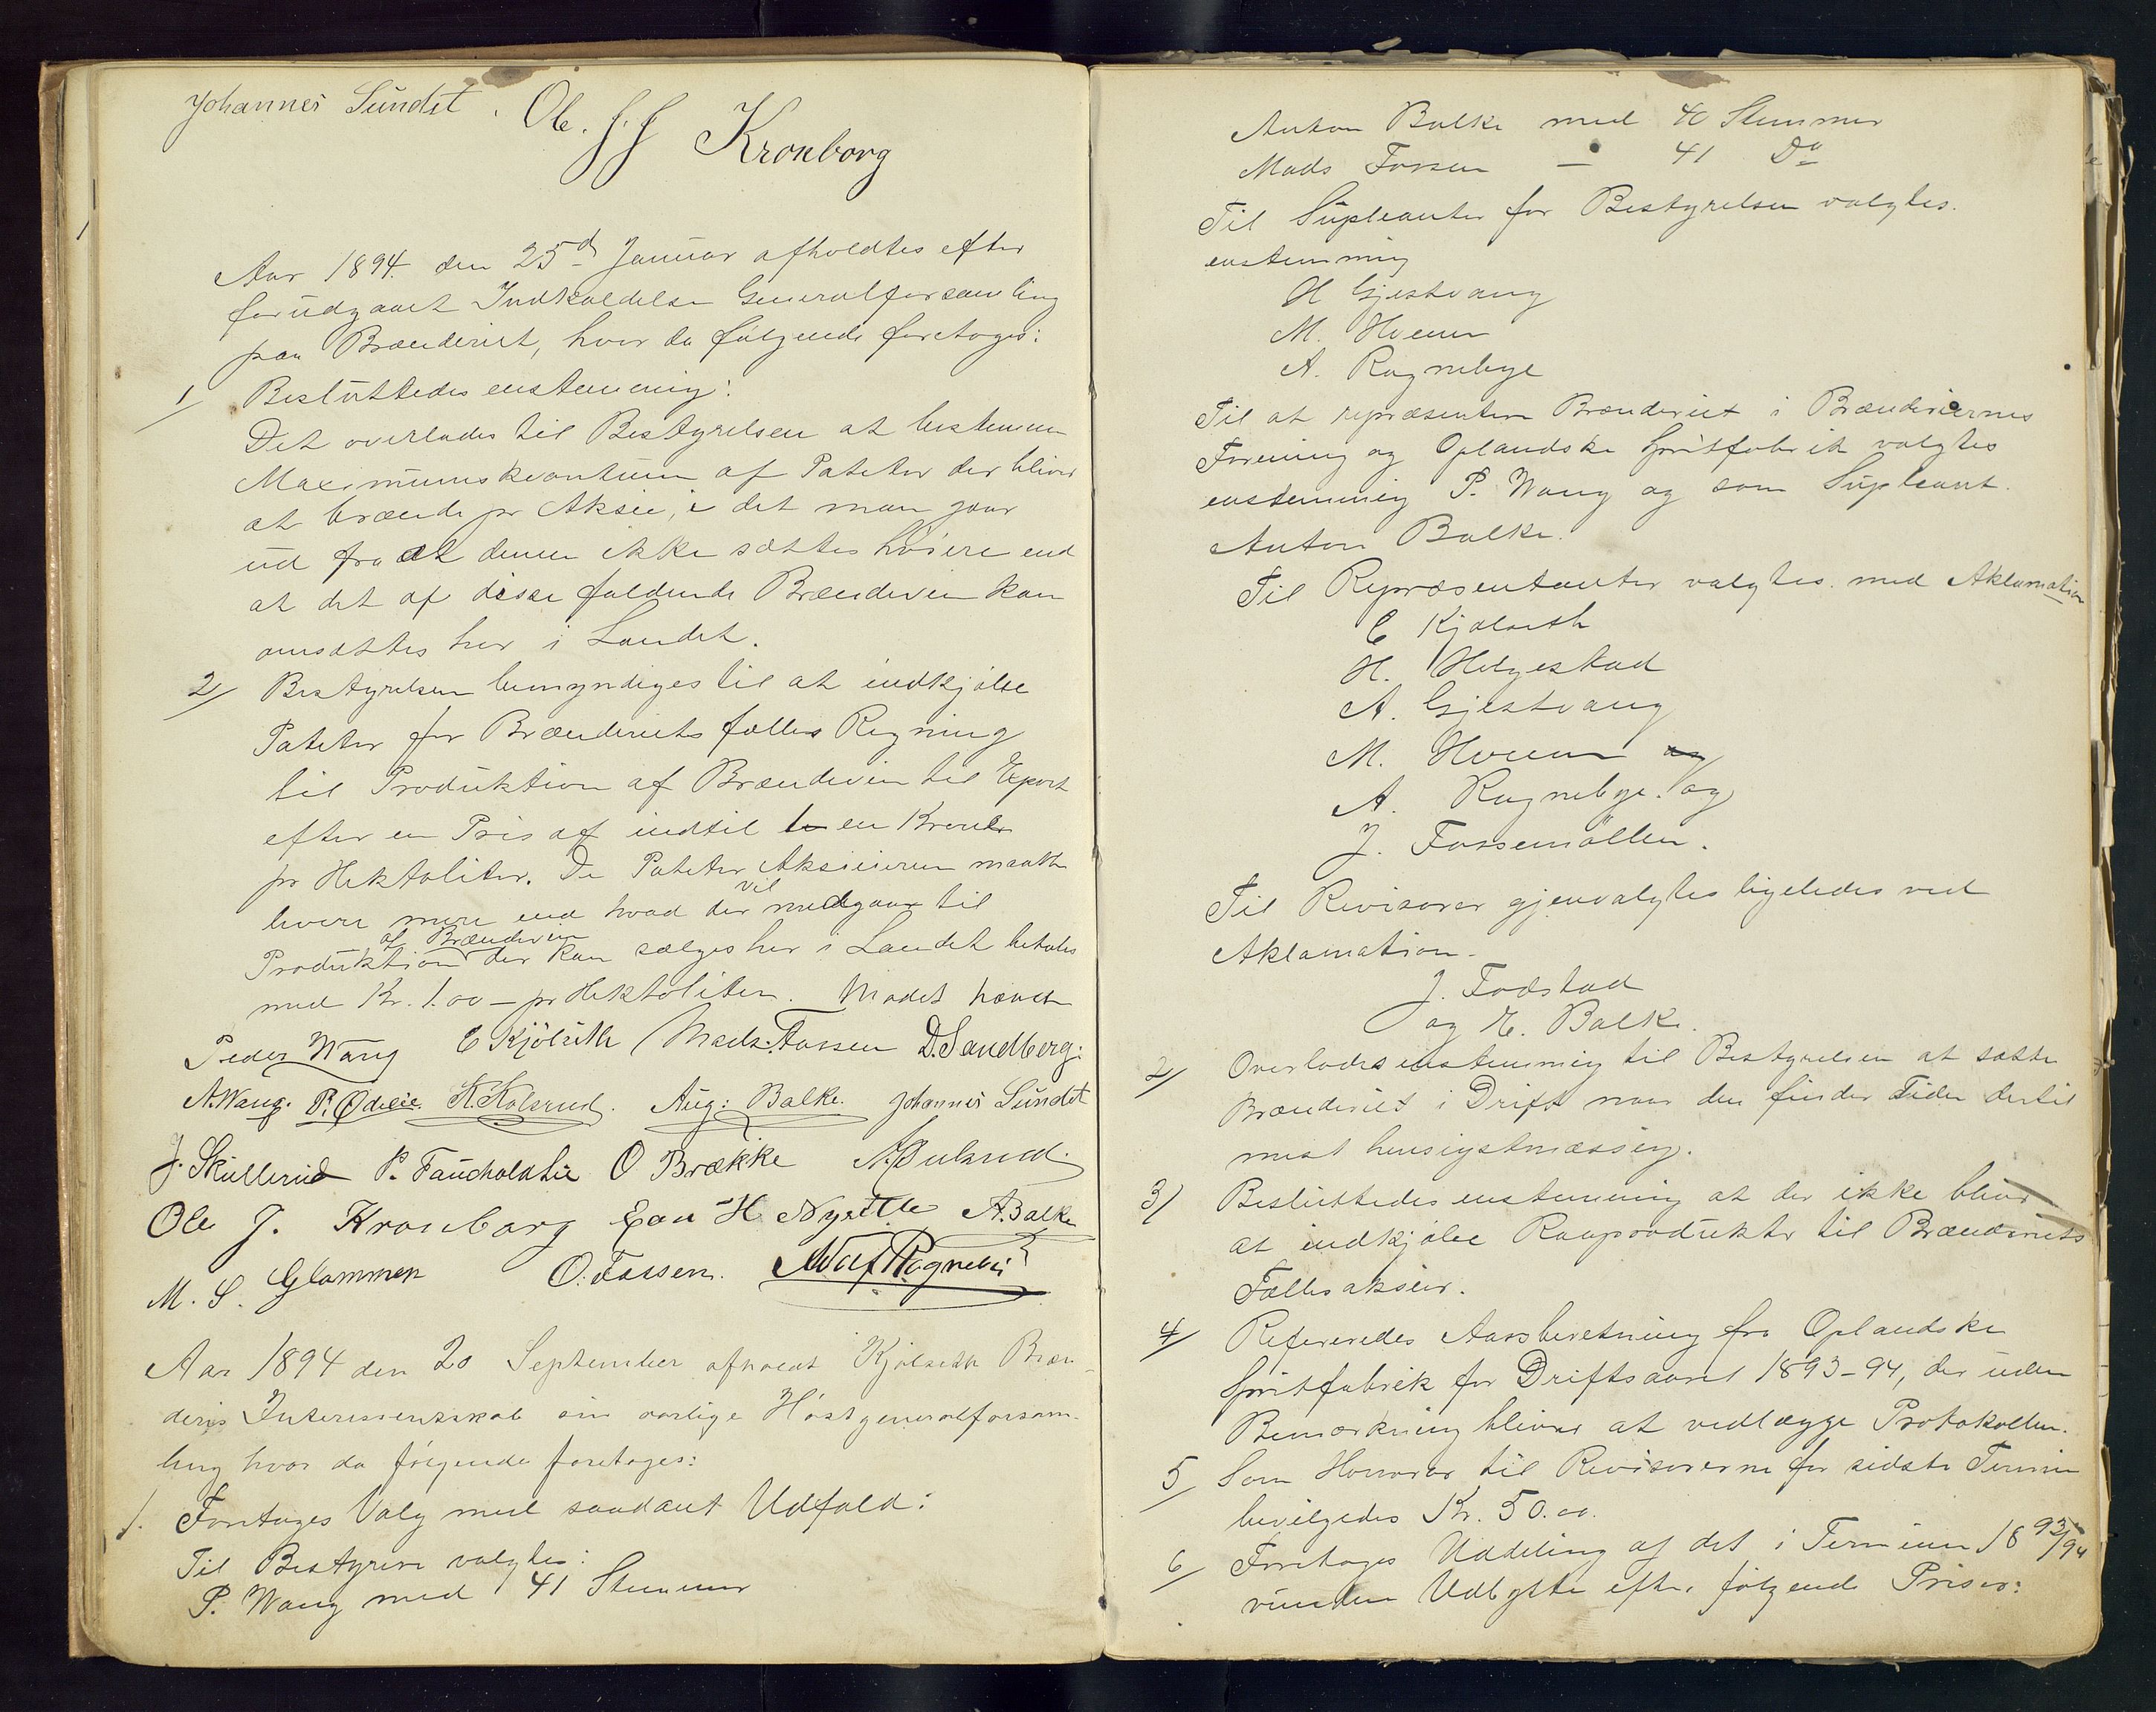 Johannes Sundet. Ole. J. J Kronborg
Aar 1894. den 25d Januar afholdtes efter
forudgaaet Indkaldelse Generalforsamling
paa Brænderiet, hvor da følgende foretoges:
1/ Besluttedes enstemmig:
Det overlades til Bestyrelsen at bestemme
Maximumskvantum af Poteter der bliver
at brænde pr Aksie, i det man gaar
ud fra at denne ikke sættes høiere end
at det af disse faldende Brændevin kan
omsættes her i Landet.
2/ Bestyrelsen bemyndiges til at indkjøbe
Poteter for Brænderiets fælles Regning
til Produktion af Brændevin til Export
efter en Pris af indtil en Krone
pr Hektoliter. De Poteter Aksieierne maatte
levere mere end hvad der vil medgaar til
Produktion af Brændevin der kan sælges her i Landet betales
med Kr. 1.00 – pr Hektoliter. Mødet hævet
Peder Wang C Kjölseth Mads. Fossen D. Sandberg.
A. Wang. P. Ødelie. K. Kolsrud. Aug: Balke. Johannes Sundet
J. Skullerud P. Fauchaldlie O Brække
Ole J. Kronborg Even H Nyxtle A. Balke
M. S. Glommen O. Fossen. Ragnebye
Aar 1894 den 20 September afholdt Kjølseth Bræn-
deris Interessentskab sin aarlige Høstgeneralforsam-
ling hvor da følgende foretoges:
1. Foretoges Valg med saadant Udfald:
Til Bestyrere valgtes:
P. Wang med 41 Stemmer
Anton Balke med 40 Stemmer
Mads Fossen — 41 Do
Til Supleanter for Bestyrelsen valgtes.
enstemmig
H Gjestvang
M. Hoenn
A. Ragnebye
Til at repræsentere Brænderiet i Brænderiernes
Forening og Oplandske Spritfabrik valgtes
enstemmig P. Wang og som Supleant.
Anton Balke.
Til Repræsentanter valgtes med Aklamation
C Kjølseth
H. Helgestad
A. Gjestvang
M. Hoenn og
A. Ragnebye. og
J. Fossemöllen.
Til Revisorer gjenvalgtes ligeledes ved
Aklamation.
J. Fodstad
og E. Balke.
2/ Overlodes enstemmig til Bestyrelsen at sætte
Brænderiet i Drift naar den finder Tiden dertil
mest hensigtsmæssig.
3/ Besluttedes enstemmig at der ikke bliver
at indkjøbe Raaprodukter til Brænderiets
Fællesaksier.
4/ Refereredes Aarsberetning fra Oplandske
Spritfabrik for Driftsaaret 1893–94, der uden
Bemærkning bliver at vedlægge Protokollen.
5/ Som Honorar til Revisorerne for sidste Termin
bevilgedes Kr. 50.00.
6/ Foretoges Uddeling af det i Terminen 1893/94
vundne Udbytte efter følgende Priser: